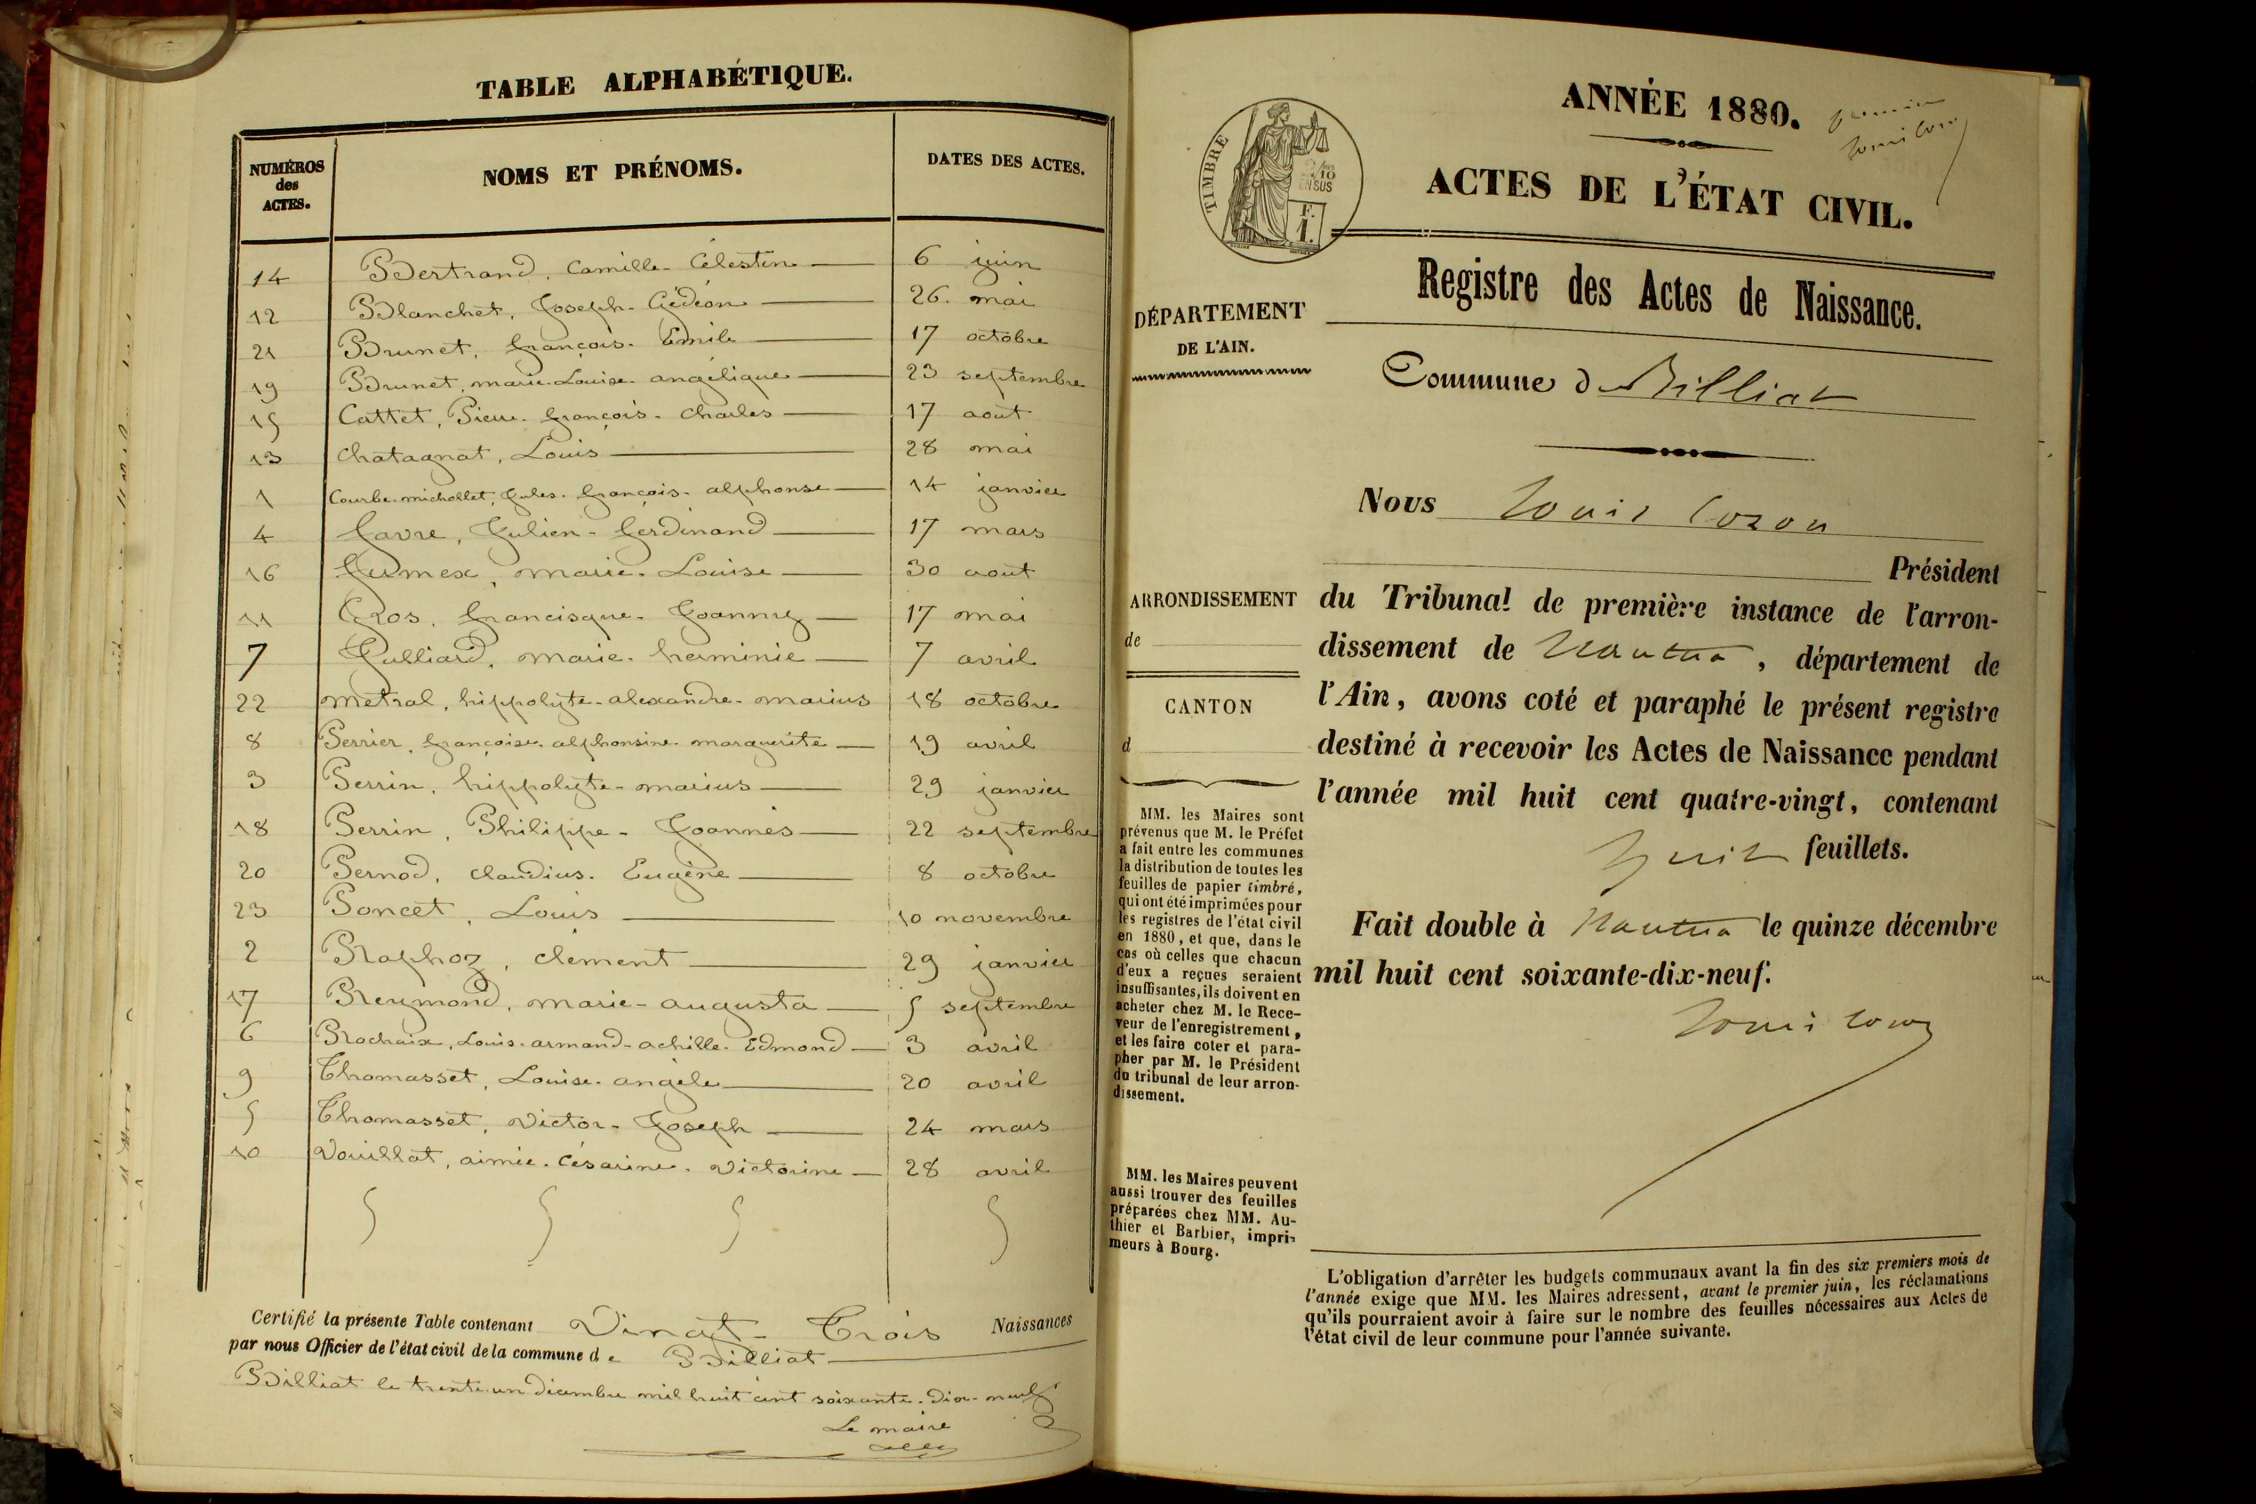 TABLE ALPHABÉTIQUE.
NUMÉROS des ACTES.
NOMS ET PRÉNOMS.
DATES DES ACTES.
14 Bertrand, Camille-Célestin 6 juin
12 Blanchet, Joseph-Gédéon 26 mai
21 Brunet, françois-Emile 17 octobre
19 Brunet, marie-Louise-angélique 23 septembre
15 Cattet, Pierre-françois-charles 17 août
13 Chatagnat, Louis 28 mai
1 Courbe-michollet, Jules-françois-alphonse 14 janvier
4 favre, Julien-ferdinand 17 mars
16 Gumex, marie-Louise 30 août
11 Gros, francisque-Joanny 17 mai
7 Julliard, marie-herminie 7 avril
22 métral, hippolyte-alexandre-marius 18 octobre
8 Perrier, françoise-alphonsine-marguerite 19 avril
3 Perrin, hippolyte-marius 29 janvier
18 Perrin, Philippe-Joannès 22 septembre
20 Pernod, claudius-Eugène 8 octobre
23 Poncet, Louis 10 novembre
2 Raphoz, clément 29 janvier
17 Reymond, marie-augusta 5 septembre
6 Rochaix, Louis-armand-achille-Edmond 3 avril
9 Thomasset, Louise-angèle 20 avril
5 Thomasset, victor-Joseph 24 mars
10 Vouillat, aimée-Césarine-victorine 28 avril
Certifié la présente Table contenant Vingt-Trois Naissances
par nous Officier de l'état civil de la commune de Billiat
Billiat le trente un décembre mil huit cent soixante-dix-neuf
Le maire
ANNÉE 1880.
premier
Louis Cozon
TIMBRE
2/10
EN SUS
F.
1.
ACTES DE L'ÉTAT CIVIL.
Registre des Actes de Naissance.
DÉPARTEMENT
DE L'AIN.
Commune d Billiat
Nous Louis Cozon
Président
ARRONDISSEMENT
de
CANTON
d
du Tribunal de première instance de l'arron-
dissement de Nantua, département de
l'Ain, avons coté et paraphé le présent registre
destiné à recevoir les Actes de Naissance pendant
l'année mil huit cent quatre-vingt, contenant
huit feuillets.
Fait double à Nantua le quinze décembre
mil huit cent soixante-dix-neuf.
Louis Cozon
MM. les Maires sont
prévenus que M. le Préfet
a fait entre les communes
la distribution de toutes les
feuilles de papier timbré,
qui ont été imprimées pour
les registres de l'état civil
en 1880, et que, dans le
cas où celles que chacun
d'eux a reçues seraient
insuffisantes, ils doivent en
acheter chez M. le Rece-
veur de l'enregistrement,
et les faire coter et para-
pher par M. le Président
du tribunal de leur arron-
dissement.
MM. les Maires peuvent
aussi trouver des feuilles
préparées chez MM. Au-
thier et Barbier, impri-
meurs à Bourg.
L'obligation d'arrêter les budgets communaux avant la fin des six premiers mois de
l'année exige que MM. les Maires adressent, avant le premier juin, les réclamations
qu'ils pourraient avoir à faire sur le nombre des feuilles nécessaires aux Actes de
l'état civil de leur commune pour l'année suivante.